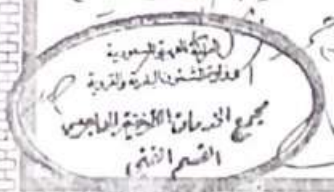 المملكة العربية السعودية
وزارة الشئون البلدية والقروية
مجمع الخدمات
القسم الفني